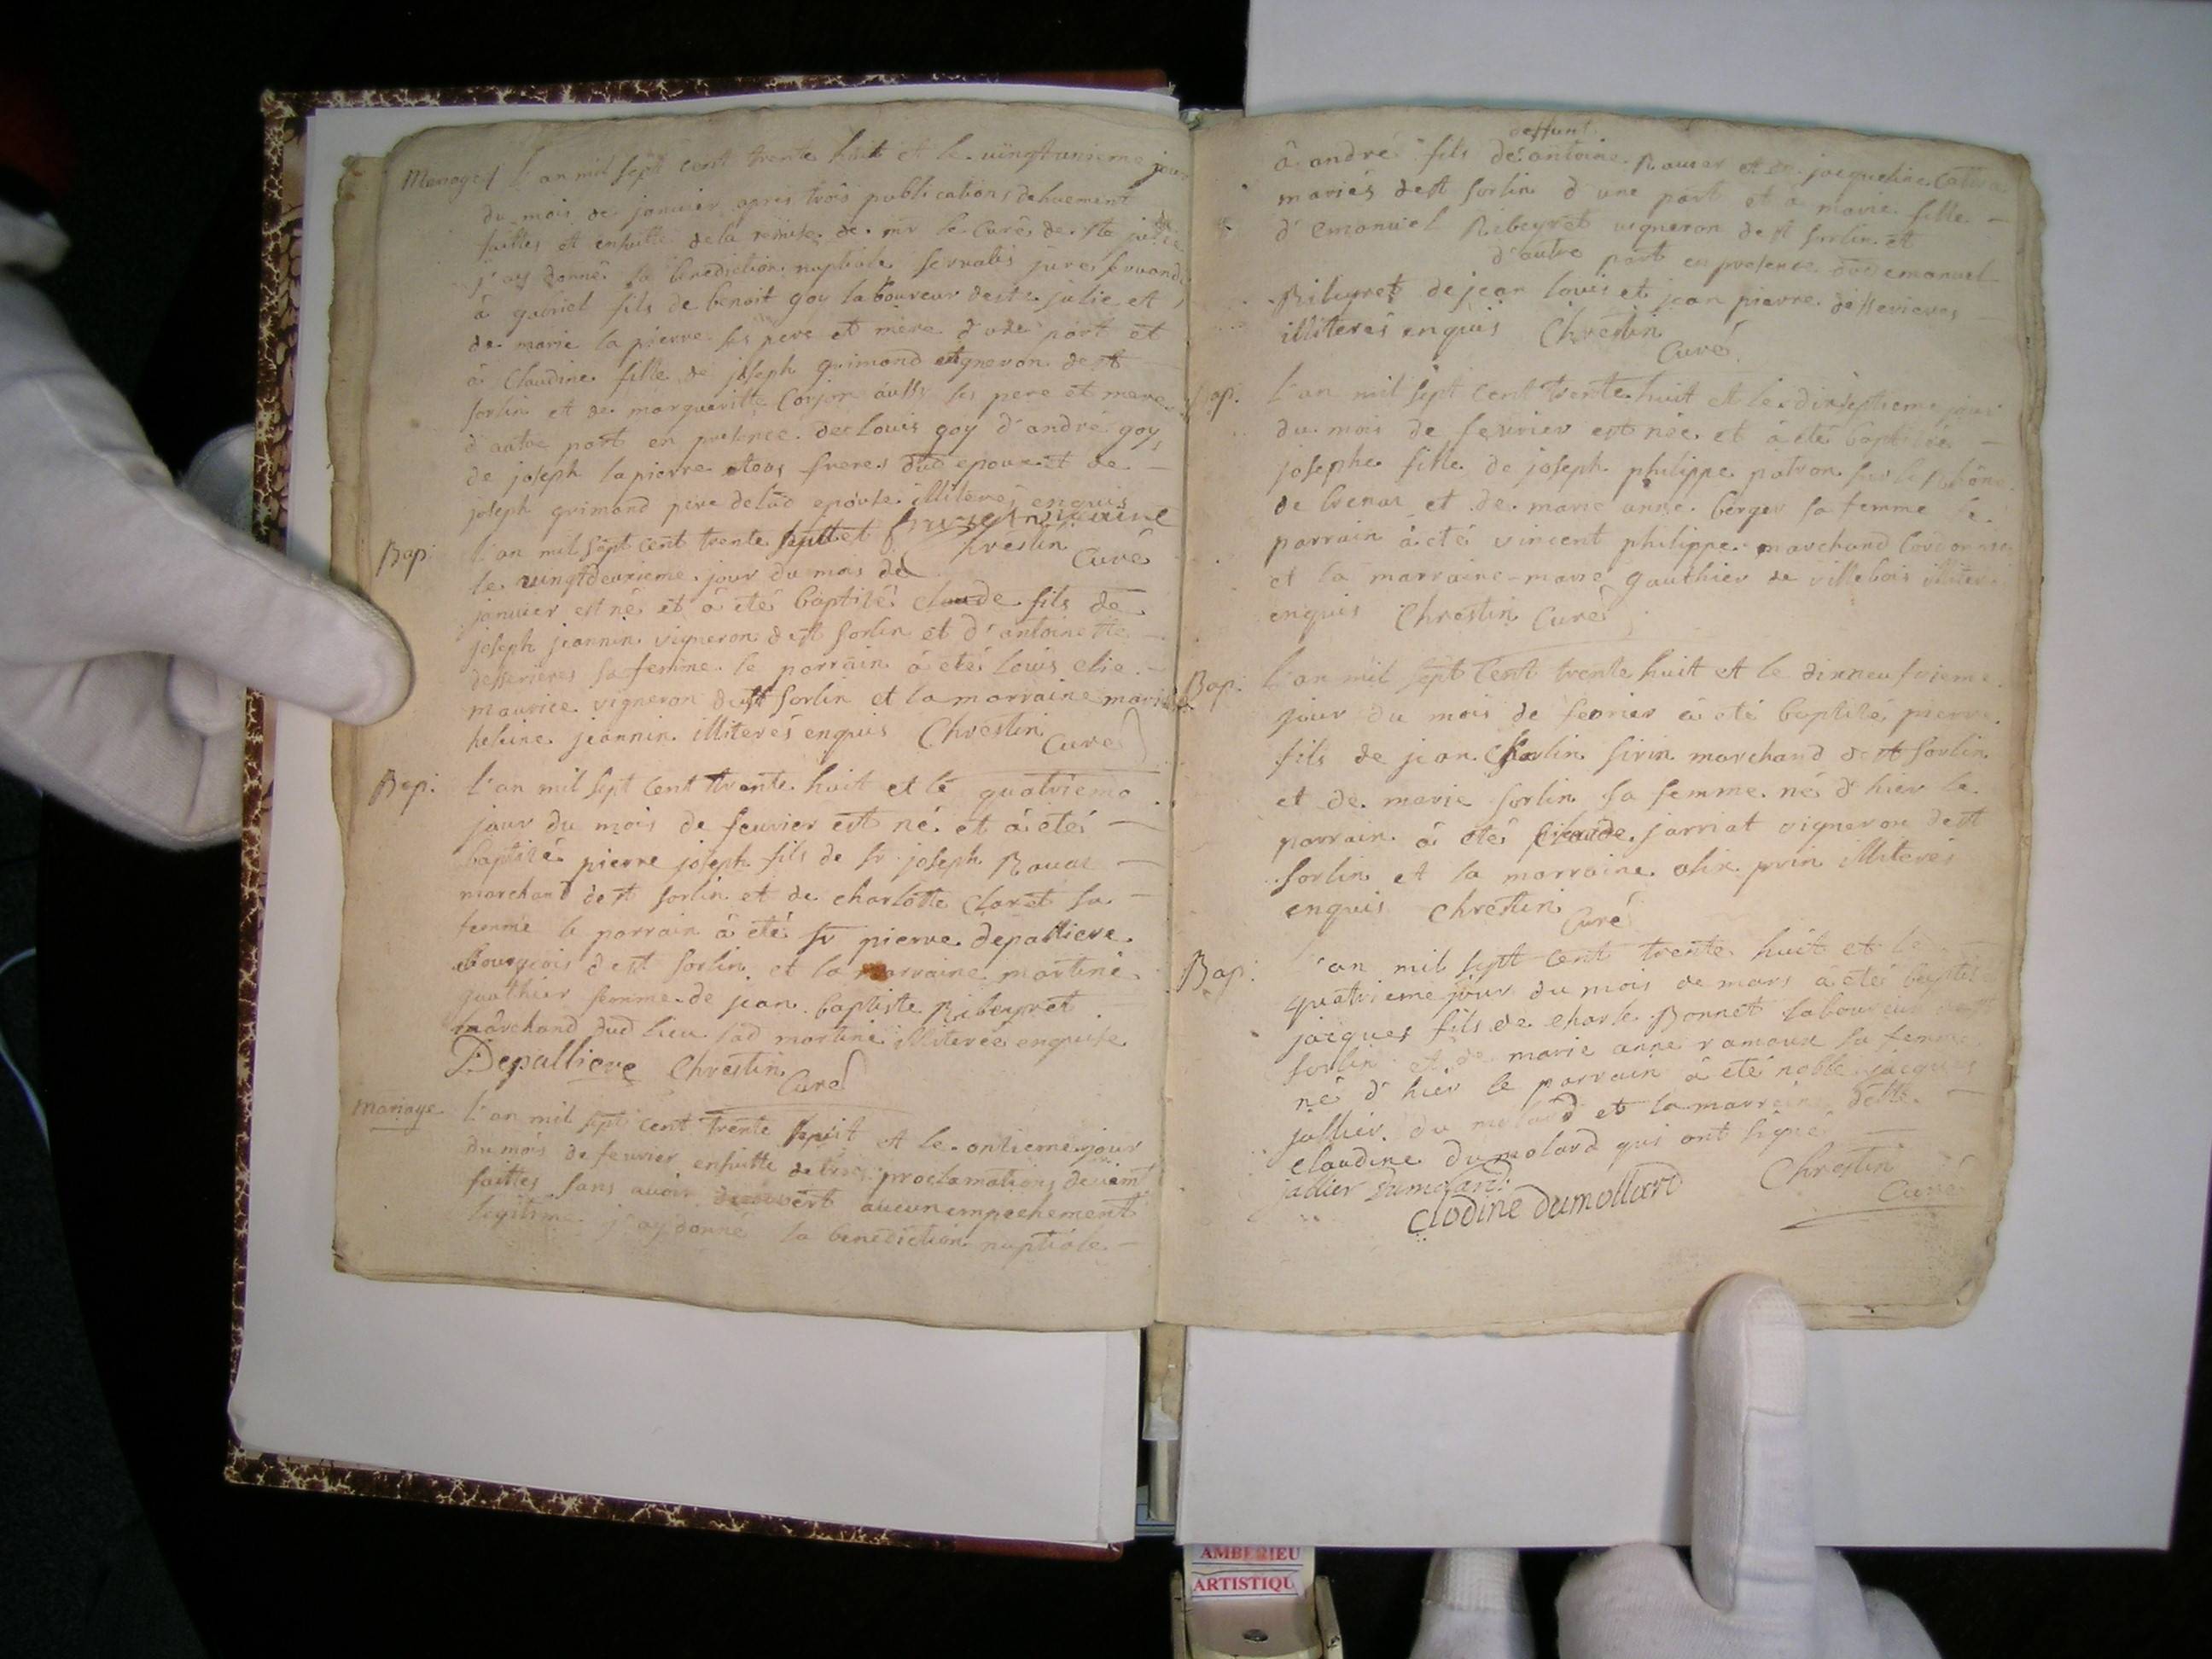 Mariage l'an mil sept cent trente huit et le vingtunieme jour
du mois de janvier apres trois publications dehuement
faittes et ensuitte de la remise de mr le Curé de ste julie
j'ay donné la benediction nuptiale servatis jure servandis
à gabriel fils de benoit goy laboureur de ste julie et
de marie la pierre ses pere et mere d'une part et
à Claudine fille de joseph grimond vigneron de st
sorlin et de margueritte aussy ses pere et mere
d'autre part en presence de louis goy d'andré goy
de joseph lapierre tous freres dud epoux et de
joseph grimond pere de lad epouse illiterés enquis
Bap: l'an mil sept cent trente huit et
Chrestin Curé
le vingtdeuxieme jour du mois de
janvier est né et à eté baptisé claude fils de
joseph jeannin vigneron de st sorlin et d'antoinette
desserieres sa femme le parrain à eté louis elie
maurice vigneron de st sorlin et la marraine marie
heleine jeannin illiterés enquis Chrestin
Curé
Bap: l'an mil sept cent trente huit et le quatrieme
jour du mois de feuvrier est né et à eté
baptisé pierre joseph fils de sr joseph Ravat
marchand de st sorlin et de charlotte claret sa
femme le parrain à eté sr pierre depalliere
bourgeois de st sorlin et la marraine martine
gauthier femme de jean baptiste Ribeyret
marchand dud lieu lad martine illiterée enquise
Depalliere Chrestin
Curé
Mariage l'an mil sept cent trente huit et le onzieme jour
du mois de feuvrier ensuitte de trois proclamations deuëmt
faittes sans avoir decouvert aucun empechement
legitime j'ay donné la benediction nuptiale
deffunt
à andré fils de antoine Ravier et de jacqueline
mariés de st sorlin d'une part et à marie fille
d'emanuel Ribeyret vigneron de st sorlin et
d'autre part en presence dud emanuel
Ribeyret de jean louis et jean pierre desserieres
illiterés enquis Chrestin
Curé
Bap: l'an mil sept cent trente huit et le dixseptieme jour
du mois de fevrier est née et à eté baptisée
josephe fille de joseph philippe patron sur le Rhône
de brenaz et de marie anne berger sa femme le
parrain à eté vincent philippe marchand cordonnier
et la marraine marie gauthier de villebois illiterés
enquis Chrestin Curé
Bap: l'an mil sept cent trente huit et le dixneufvieme
jour du mois de fevrier à eté baptisé pierre
fils de jean sorlin sirin marchand de st sorlin
et de marie sorlin sa femme né d'hier le
parrain à eté claude jarriat vigneron de st
sorlin et la marraine alix prin illiterés
enquis Chrestin
Curé
Bap: l'an mil sept cent trente huit et le
quatrieme jour du mois de mars à eté baptisé
jacques fils de charle Bonnet laboureur de st
sorlin et de marie anne ramoux sa femme
né d'hier le parrain à eté noble jacques
jallier du molard et la marraine delle
claudine dumolard qui ont signé
jallier dumolard Chrestin
Clodine dumollard Curé
AMBERIEU
ARTISTIQU